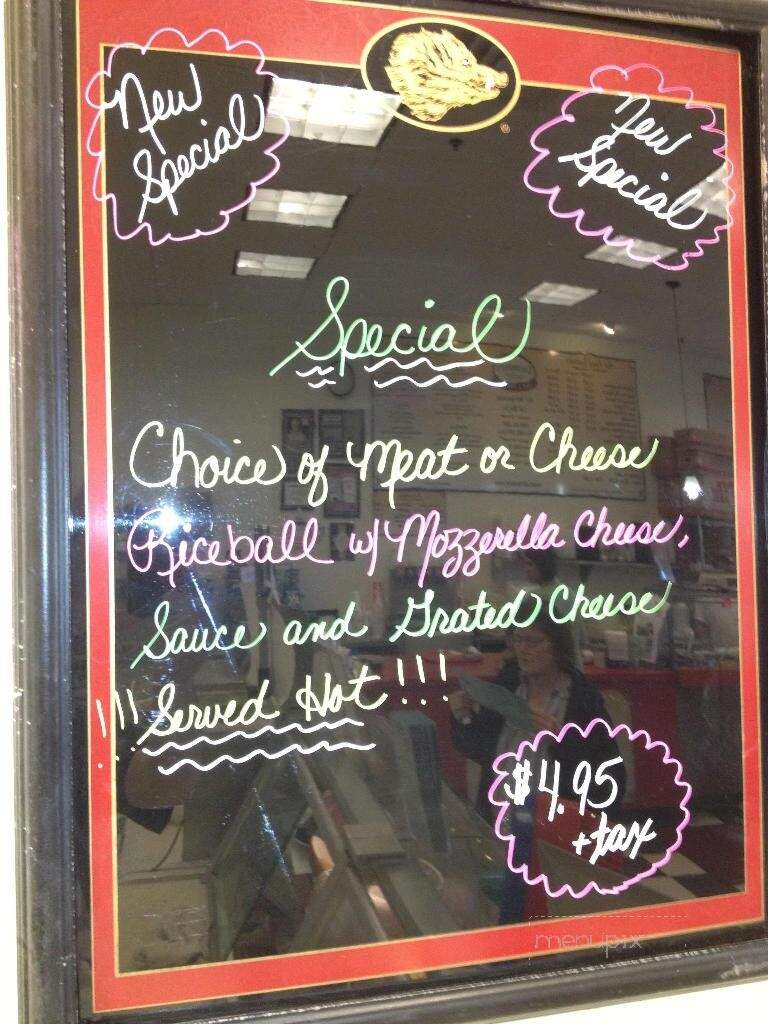 New
Special
New
Special
Special
Choice of Meat or Cheese
Riceball w/ Mozzerella Cheese,
Sauce and Grated Cheese
!!! Served Hot !!!
$4.95
+ tax
menupix